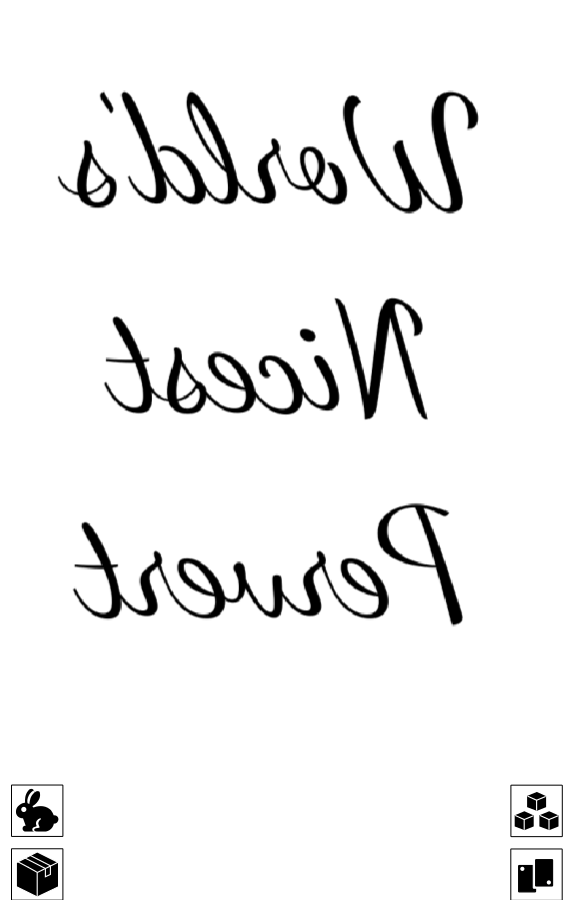 World's
Nicest
Pervert